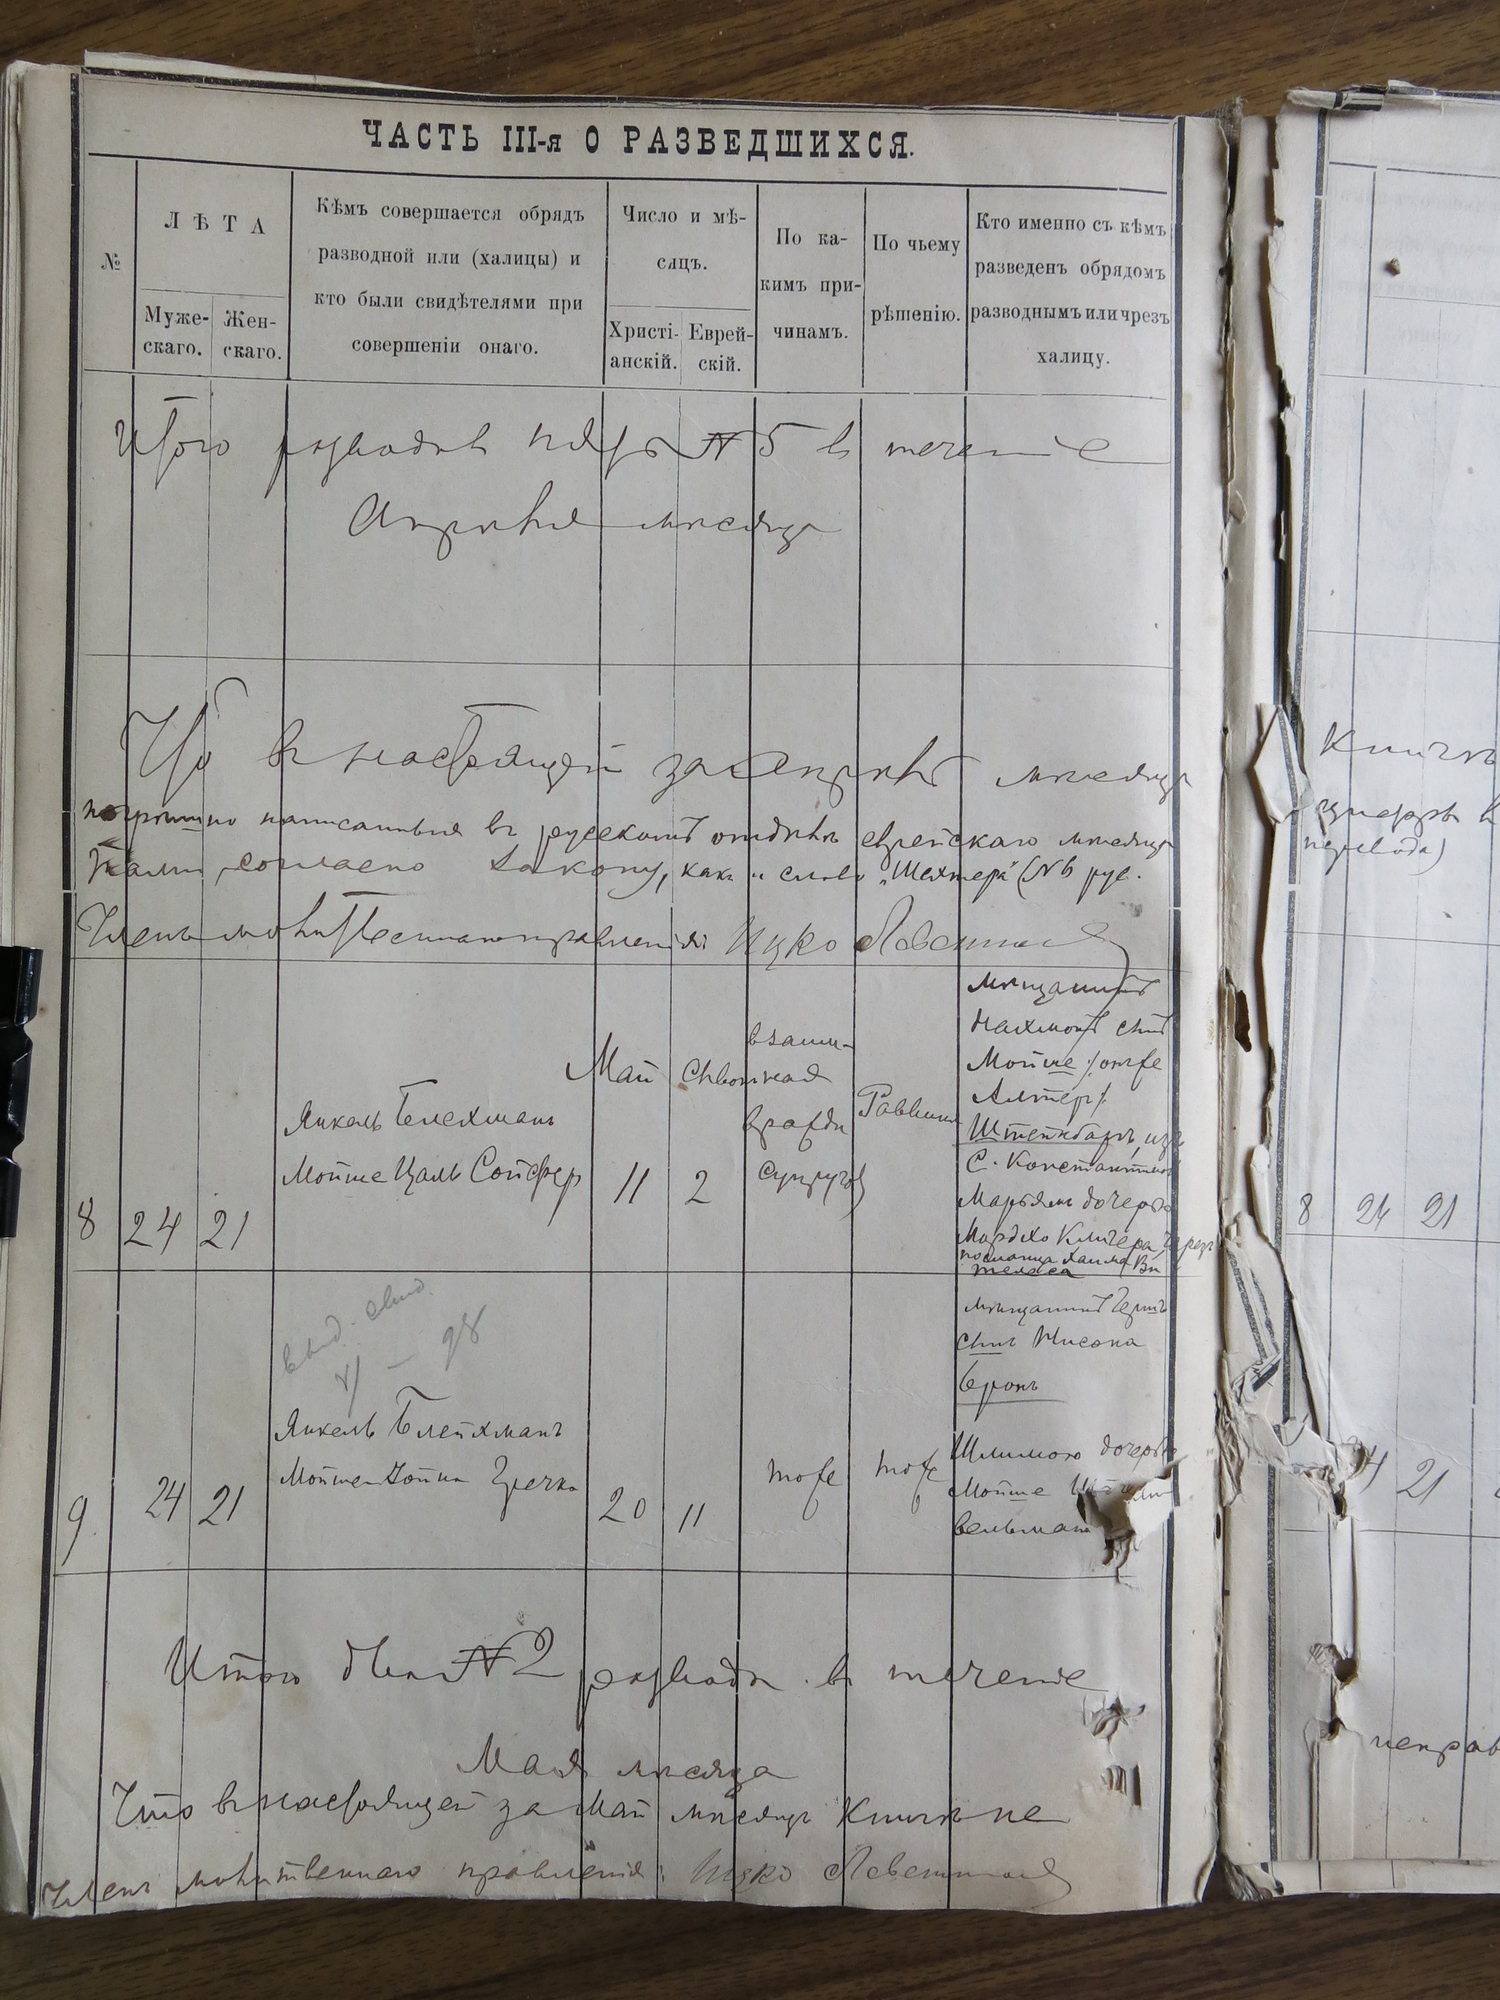 ЧАСТЬ III-я О РАЗВЕДШИХСЯ.
№
ЛѢТА
Муже-
скаго.
Жен-
скаго.
Кѣмъ совершается обрядъ
разводной или (халицы) и
кто были свидѣтелями при
совершеніи онаго.
Число и мѣ-
сяцъ.
Христі-
анскій.
Еврей-
скій.
По ка-
кимъ при-
чинамъ.
По чьему
рѣшенію.
Кто именно съ кѣмъ
разведенъ обрядомъ
разводнымъ или чрезъ
халицу.
Итого разводовъ пять № 5 въ теченіе
Апрѣля мѣсяца
Что въ настоящей за Апрѣль мѣсяцъ
погрѣшно написанныя въ русскомъ отдѣлѣ еврейскаго мѣсяца
согласно закону, какъ и слово „Шехтера" (№ 6 рус.
Членъ молитвеннаго правленія: Ицко
8
24
21
Янкель Блехманъ
Мойше Цаль Сойферъ
Май
11
2
взаим-
ная
вражда
супруговъ
Раввина
мѣщанинъ
Нахмонъ сынъ
Мойше /онже
Алтеръ/
Штейнбаръ, изъ
с. Константин
Марьямъ дочерью
Мордхо Кличера, чрезъ
посланца Хаима Ви
телеса
выд. свид.
98
9
24
21
Янкель Блейхманъ
Мойше Гречка
20
11
тоже
тоже
мѣщанинъ Гершъ
сынъ Нисона
Бронъ
дочерью
Мойше
вельмана
Итого два № 2 развода въ теченіе
Мая мѣсяца
Что въ настоящей за Май мѣсяцъ книгѣ не
Членъ молитвеннаго правленія: Ицко
книгѣ
цифры
перевода)
8 24 21
21
исправ